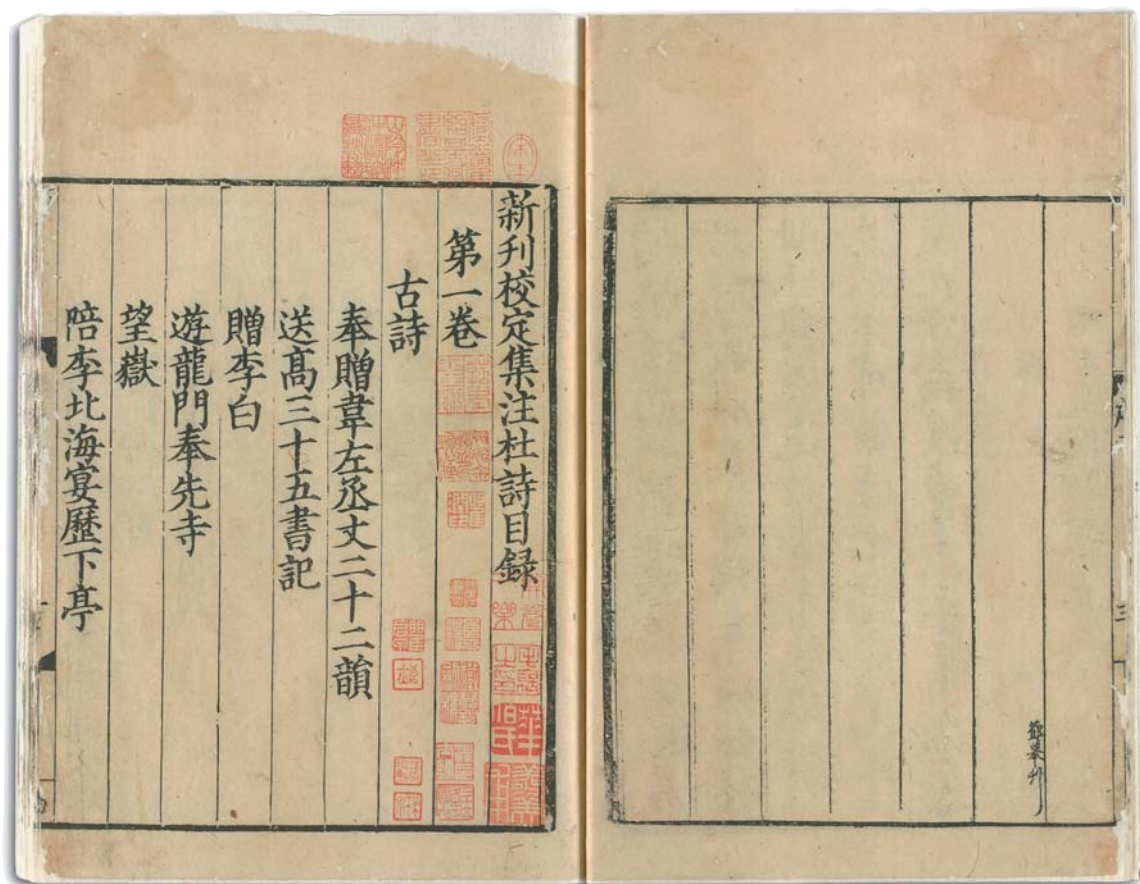 鄧奉刊
新刋校定集注杜詩目録
第一卷
古詩
奉贈韋左丞丈二十二韻
送髙三十五書記
贈李白
遊龍門奉先寺
望嶽
陪李北海宴歷下亭